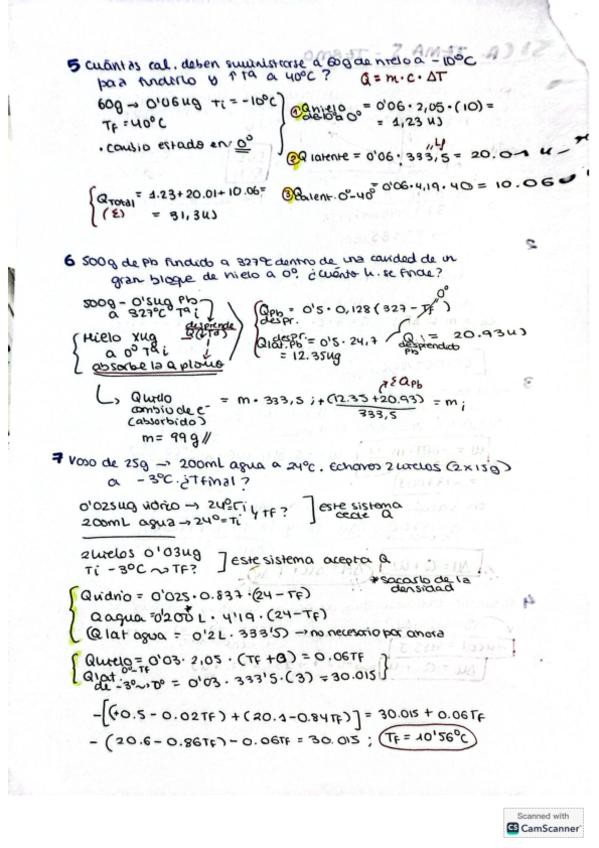 5 Cuántas cal. deben suministrarse a 60g de hielo a -10ºC
para fundirlo y ↑ Tª a 40ºC? Q = m · c · ΔT
60g → 0'06 kg Ti = -10ºC
TF = 40ºC
· cambio estado en 0º
① Q hielo = 0'06 · 2,05 · (10) =
= 1,23 kJ
② Q latente = 0'06 · 333,5 = 20.01 kJ
③ Q calent. 0º-40º = 0'06 · 4,19 · 40 = 10.06
QTotal = 1.23 + 20.01 + 10.06 =
(Σ) = 31,3 kJ
6 500g de Pb fundido a 327ºC dentro de una cavidad de un
gran bloque de hielo a 0º. ¿Cuánto h. se funde?
500g - 0'5kg Pb
a 327ºC Tª i
desprende
Hielo xkg
a 0º Tª i
absorbe la Q plomo
QPb = 0'5 · 0,128 (327 - TF) 0º
despr.
Qlat. Pb = 0'5 · 24,7
despr.
= 12.35kg
Q desprendido Pb = 20.93 kJ
Q hielo = m · 333,5 ; + (12.35 + 20.93) = m ;
333,5
ΣQPb
cambio de e-
(absorbido)
m = 99g //
7 Vaso de 25g → 200mL agua a 24ºC. Echamos 2 hielos (2x15g)
a -3ºC. ¿TFinal?
0'025kg vidrio → 24º = Ti
200mL agua → 24º = Ti
y TF?
este sistema
cede Q
2 hielos 0'03kg
Ti -3ºC ~ TF?
este sistema acepta Q
* sacarlo de la
densidad
Qvidrio = 0'025 · 0.837 · (24 - TF)
Qagua = 0'200L* · 4'19 · (24 - TF)
(Qlat agua = 0'2L · 333'5) → no necesario por ahora
Qhielo = 0'03 · 2.05 · (TF + 3) = 0.06TF
0º-TF
Qlat. de -3º~0º = 0'03 · 333'5 · (3) = 30.015
-[(+0.5 - 0.02TF) + (20.1 - 0.84TF)] = 30.015 + 0.06TF
- (20.6 - 0.86TF) - 0.06TF = 30.015 ; TF = 10'56ºC
Scanned with
CS CamScanner